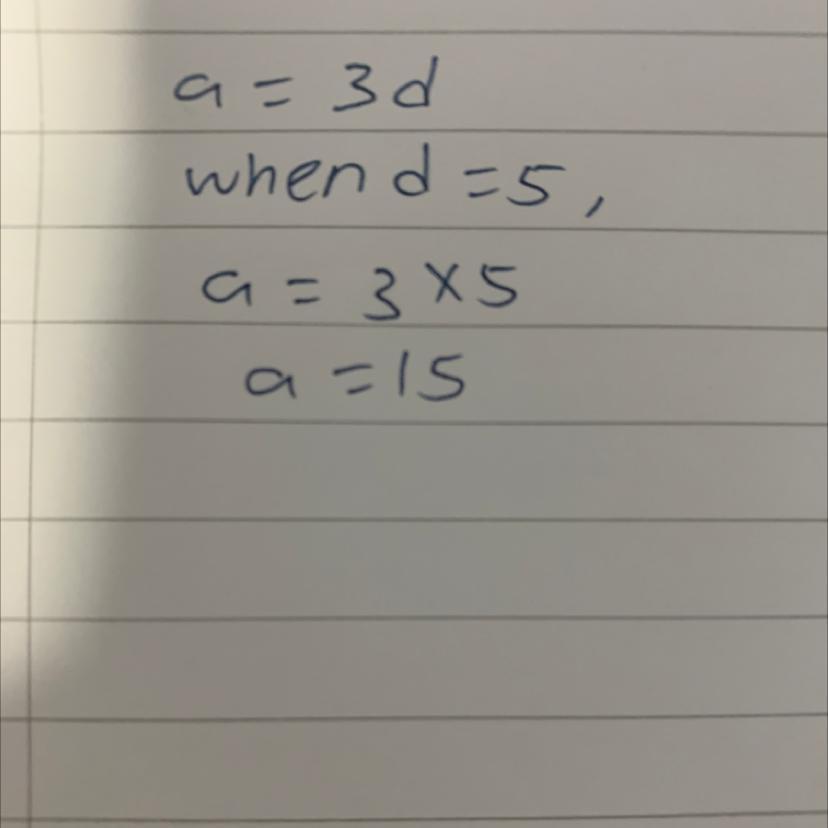 a = 3d
when d = 5,
a = 3 × 5
a = 15